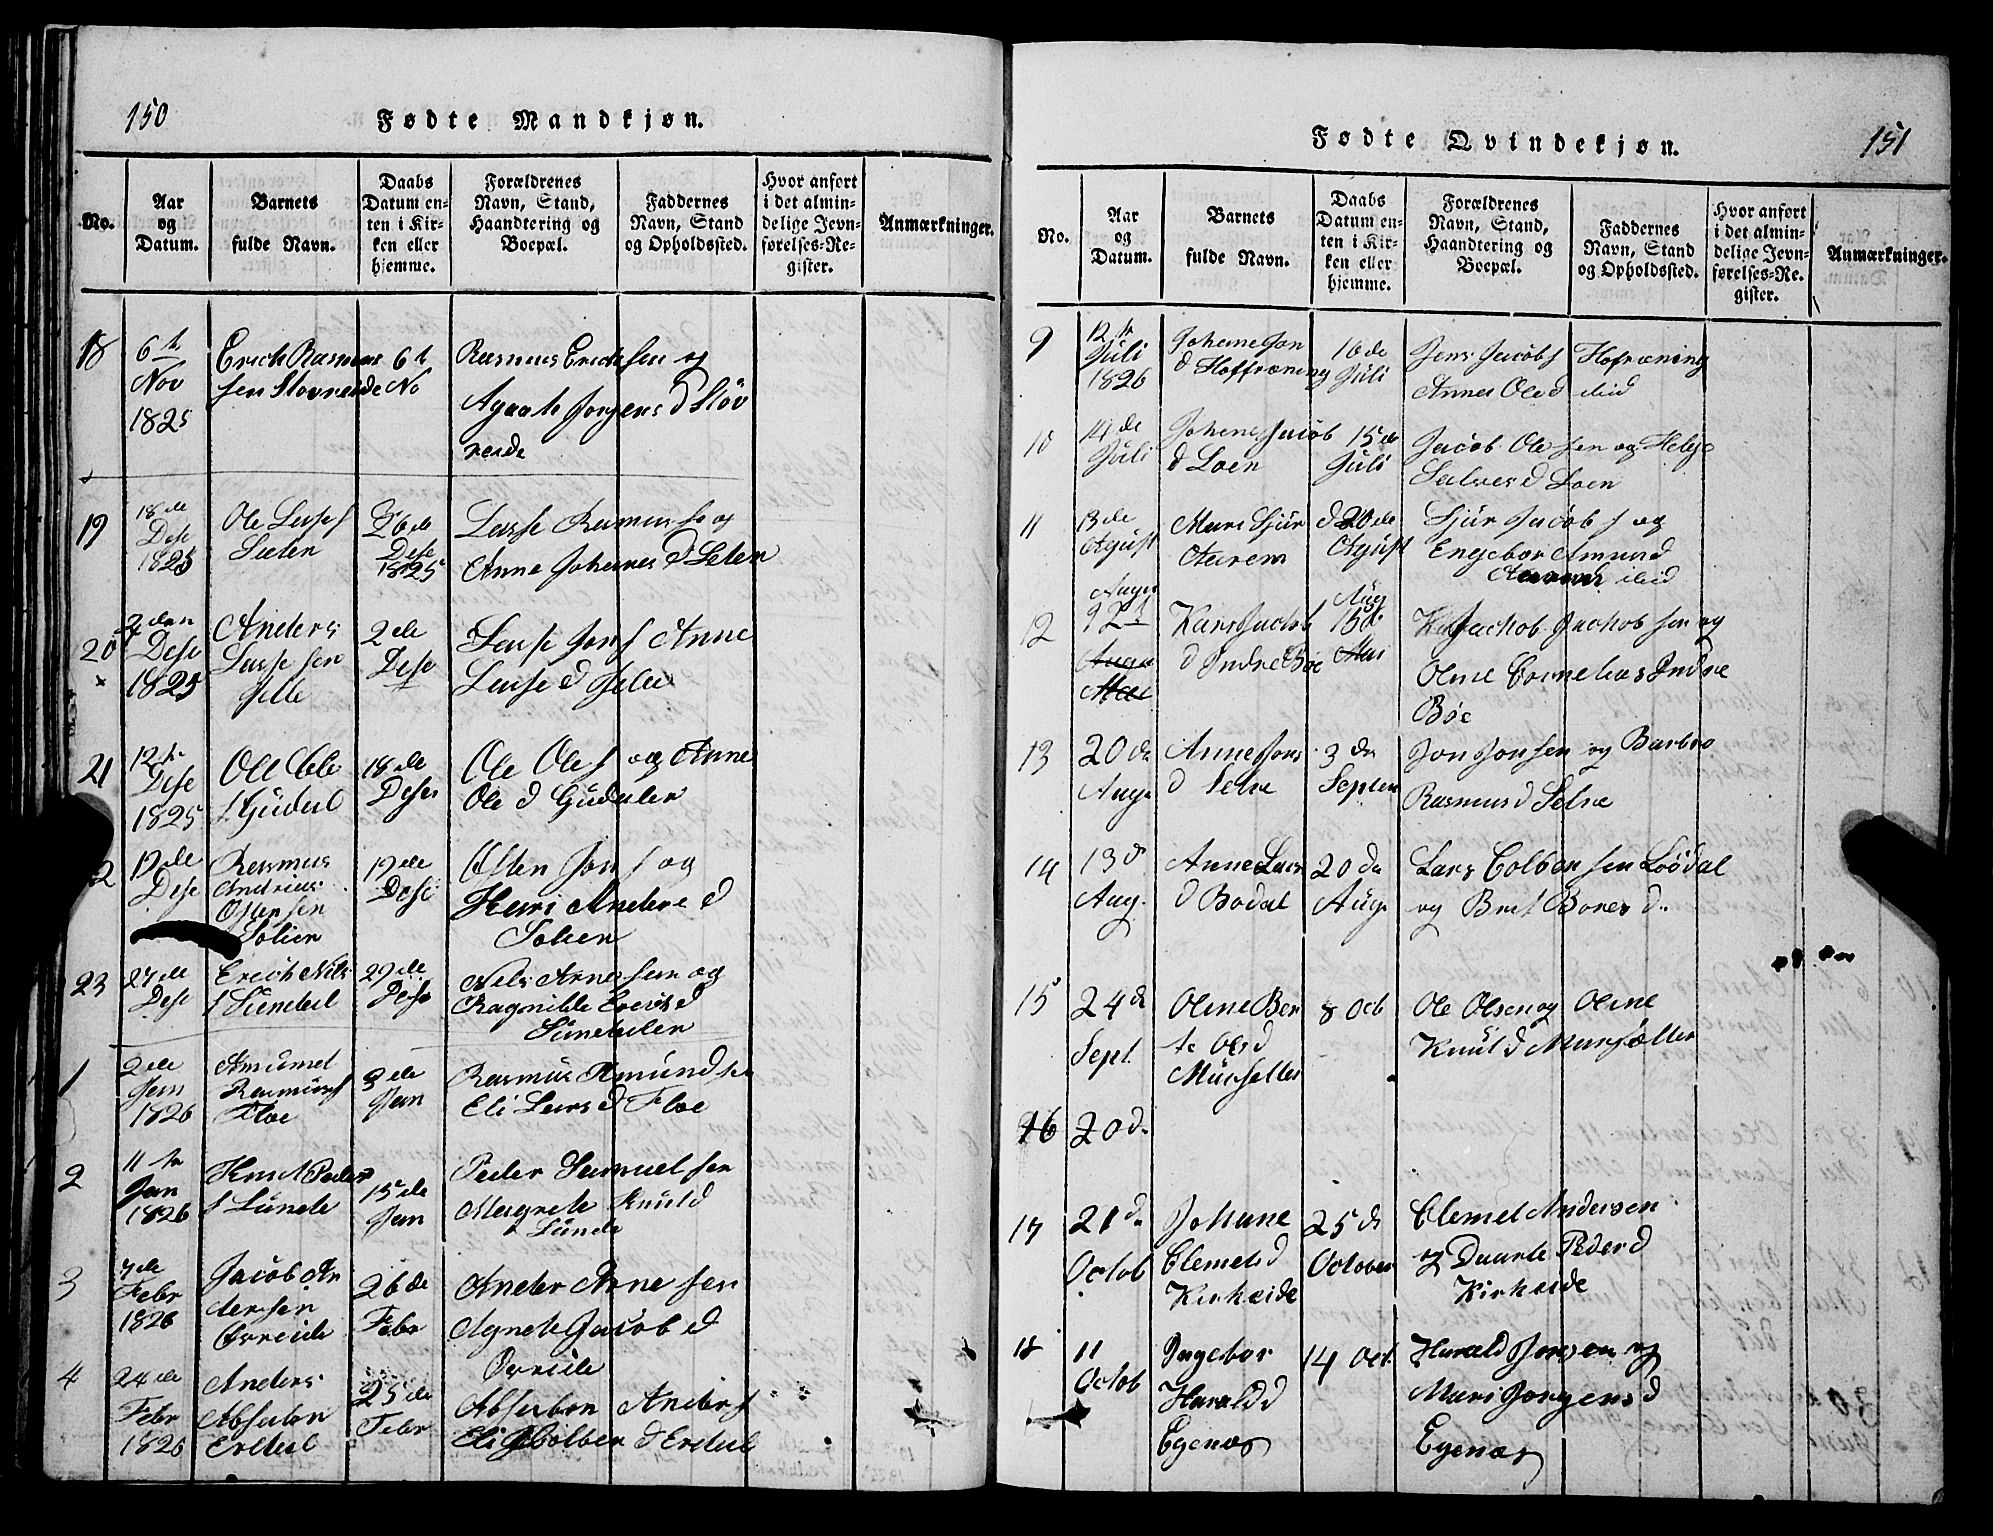 150
Fødte Mandkjøn.
No.
Aar
og
Datum.
Barnets
fulde Navn.
Daabs
Datum en-
ten i Kir-
ken eller
hjemme.
Forældrenes
Navn, Stand,
Haandtering og
Boepæl.
Faddernes
Navn, Stand
og Opholdssted.
Hvor anført
i det almin-
delige Jevn-
førelses-Re-
gister.
Anmærkninger.
18
6t
Nov
1825
Erich Rasmus
sen
6t
No
Rasmus Erichsen og
Agaate Jorgens d Sløv
reide
19
18de
Dese
1825
Ole Lasse s
Sæten
26de
Dese
1825
Lasse Rasmus
Anne Johannes d Seten
20
2den
Dese
1825
Anders
Lasse sen
Gille
2de
Dese
Lasse Jon s Anne
Lasse d Gille
21
12te
Dese
1825
Ole Ole
s Gudal
18de
Deser
Ole Ole s og Anne
Ole d Gudalen
2
19de
Dese
Rasmus
Andreas
Ostensen
Solien
19de
Dese
Osten Jon s og
Hari Andere d
Solien
23
27de
Dese
Erich Nils
s Sundal
29de
Dese
Nils Arne sen og
Ragnilde Erichs d
Sundalen
1
2de
Jan
1826
Amund
Rasmus s
Floe
3de
Jan
Rasmus Amundsen
Eli Lars d Floe
2
11te
Jan
1826
Knud Peder
s Sunde
15de
Jan
Peder Samuel sen
Magrete Knud d
Sunde
3
7de
Febr
1826
Jacob An
dersen
Ovreide
26de
Febr
Ander Arne sen
Agnete Jacob d
Ovreide
4
24de
Febr
1826
Anders
Absalon
Erdal
25de
Febr
Absalon Anders s
Eli Colben d Erdal
Fødte Qvindekjøn.
151
No.
Aar
og
Datum.
Barnets
fulde Navn.
Daabs
Datum en-
ten i Kir-
ken eller
hjemme.
Forældrenes
Navn, Stand,
Haandtering og
Boepæl.
Faddernes
Navn, Stand
og Opholdssted.
Hvor anført
i det almin-
delige Jevn-
førelses-Re-
gister.
Anmærkninger.
9
12te
Juli
1826
Johane Jon
d Hoffræning
16de
Juli
Jens Jacob s Hofræning
Anne Ole d ibid
10
14de
Juli
Johane Jacob
d Loen
15de
Juli
Jacob Ole sen og Helge
Salves d Loen
11
13de
Agust
Mari Sjur d
Aarem
20de
Agust
Sjur Jacob s og
Engebor Amund d
ibid
12
Augu
12t
Kari Jacob
d Indre Böe
Aug
13d
Jachob Jachob sen og
Oline Cornelius Indre
Böe
13
20de
Augu
Anne Jons
d Selve
3de
Septem
Jon Jonsen og Barbro
Rasmus d Selve
14
13de
Aug.
Anne Lars
d Bodal
20de
Augu
Lars Colben sen Löödal
og Brit Bones d.
15
24de
Sept
Oline Ber
te Ols d
8 Octb
Ole Olsen og Oline
Knut d
16
20d.
17
21d.
Octob
Johane
Clemets d
Kirkeide
25de
October
Clemet Andersen
og Daarte Peder d
Kirkeide
18
11
Octob
Ingebor
Harald d
Egenæs
14 Oct.
Harald Jorgen og
Mari Jorgens d
Egenæs